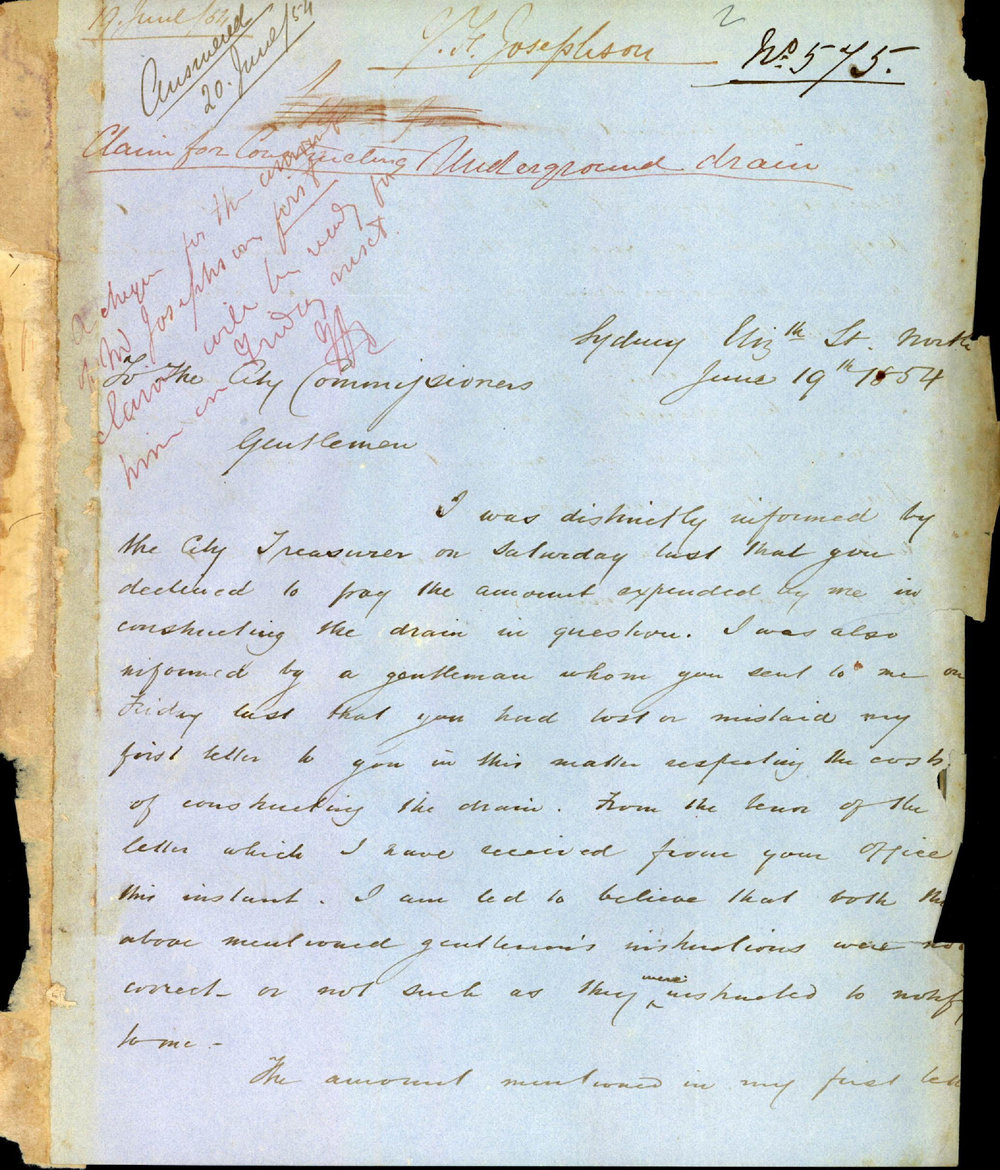 19. June /54
Answered
20. June /54
J. F. Josephson
No. 575.
Claim for Constructing Underground drain
A cheque for the amount
of Mr Josephson first
claim will be ready for
him on Friday next.
Sydney Eliz.th St. North
June 19th 1854
To The City Commissioners
Gentlemen
I was distinctly informed by
the City Treasurer on Saturday last that you
declined to pay the amount expended by me in
constructing the drain in question. I was also
informed by a gentleman whom you sent to me on
Friday last that you had lost or mislaid my
first letter to you in this matter respecting the costs
of constructing the drain. From the tenor of the
letter which I have received from your office
this instant. I am led to believe that both the
above mentioned gentlemen's instructions were not
correct - or not such as they were instructed to notify
to me -
The amount mentioned in my first